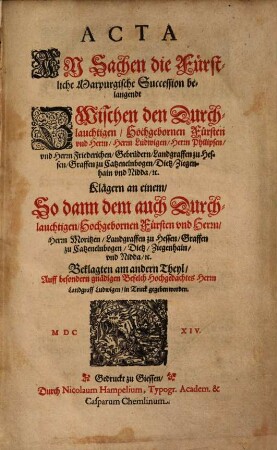 ACTA
IN Sachen die Fürst-
liche Marpurgische Succession be-
langendt
Zwischen den Durch-
lauchtigen / Hochgebornen Fürsten
vnd Herrn / Herrn Ludwigen / Herrn Philipsen /
vnd Herrn Friederichen / Gebrüdern / Landgraffen zu Hes-
sen / Graffen zu Catzenelnbogen / Dietz / Ziegen-
hain vnd Nidda / ꝛc.
Klägern an einem /
So dann dem auch Durch-
lauchtigen / Hochgebornen Fürsten vnd Herrn /
Herrn Moritzen / Landgraffen zu Hessen / Graffen
zu Catzenelnbogen / Dietz / Ziegenhain /
vnd Nidda / ꝛc.
Beklagten am andern Theyl /
Auff besondern gnädigen Befelch Hochgedachtes Herrn
Landgraff Ludwigen / in Truck gegeben worden.
MDC XIV.
Gedruckt zu Giessen /
Durch Nicolaum Hampelium, Typogr. Academ. &
Casparum Chemlinum.